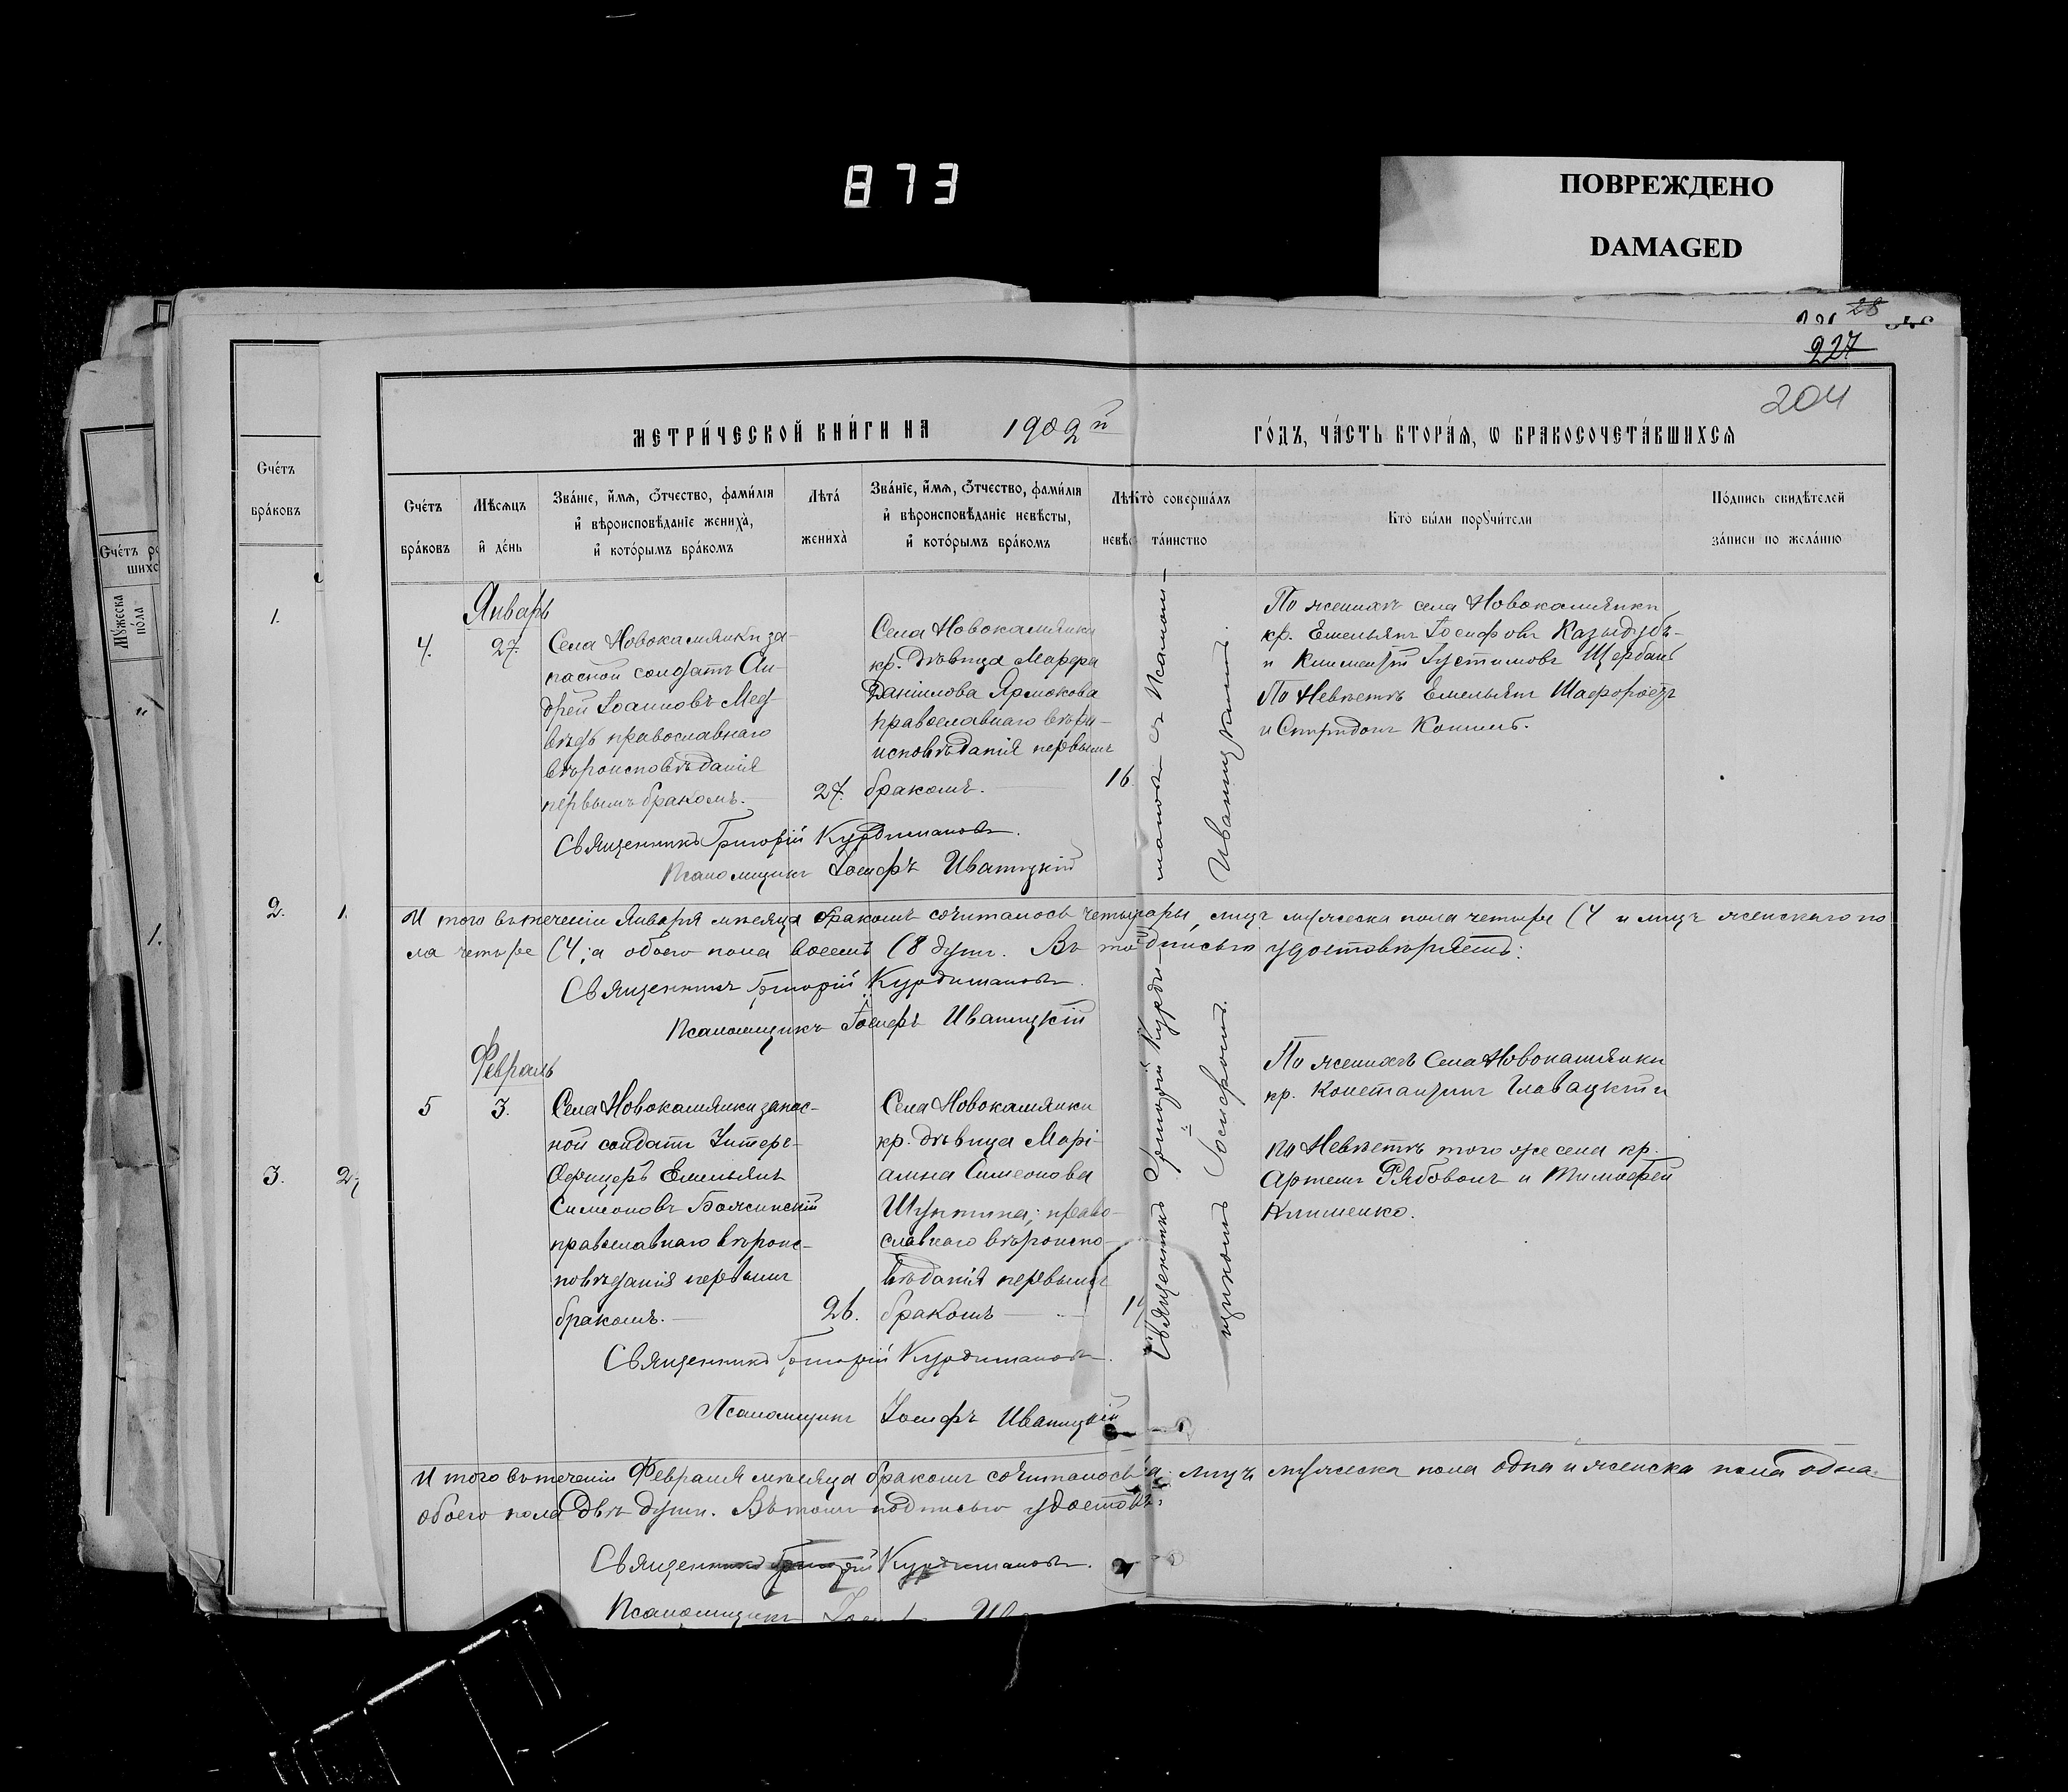 873
ПОВРЕЖДЕНО
DAMAGED
28
227
204
МЕТРИ́ЧЕСКОЙ КНИ́ГИ НА 1902й ГО́ДЪ, ЧА́СТЬ ВТОРА́Я, Ѡ БРАКОСОЧЕТА́ВШИХСЯ
Сче́тъ
бра́ковъ
Сче́тъ
бра́ковъ
Мѣ́сяцъ
и҆ де́нь
Зва́нїе, и҆́мѧ, ѻ҆́тчество, фами́лїѧ
и҆ вѣроисповѣ́данїе жениха̀,
и҆ кото́рымъ бра́комъ
Лѣта́
жениха̀
Зва́нїе, и҆́мѧ, ѻ҆́тчество, фами́лїѧ
и҆ вѣроисповѣ́данїе невѣ́сты,
и҆ кото́рымъ бра́комъ
Лѣ
невѣс
Кто̀ соверша́лъ
та́инство
Кто̀ бы́ли порꙋчи́тели
По́дпись свидѣ́телей
за́писи по жела́нїю
Мꙋ́жеска
по́ла
1.
2.
1.
3.
2
1.
Январь
4.
27.
Села Новокамянки за-
пасной солдатъ Ан-
дрей Іоанновъ Мед-
вѣдь православнаго
вѣроисповѣданія
первымъ бракомъ.
27.
Села Новокамянки
кр. дѣвица Марфа
Даніилова Ярмокова
православнаго вѣро-
исповѣданія первымъ
бракомъ.
16
По женихѣ села Новокамянки
кр. Емельянъ Іосифовъ Казыдубъ-
и Климентій Іустиновъ Щербань
По Невѣстѣ Емельянъ
и Спиридонъ
Священникъ Григорій Курдимановъ.
Псаломщикъ Іосифъ Иваницкій
И того въ теченіи Января мѣсяца бракомъ сочиталось четыре пары, лицъ мужеска пола четыре (4 и лицъ женскаго по
ла четыре (4; а обоего пола восемь (8 душъ. Въ томъ подписью удостовѣряемъ:
Священникъ Григорій Курдимановъ.
Псаломщикъ Іосифъ Иваницкій
Февраль
5
3.
Села Новокамянки запас-
ной солдатъ Унтеръ-
Офицеръ Емельянъ
Симеоновъ Божинскій
православнаго вѣроис-
повѣданія первымъ
бракомъ.
26.
Села Новокамянки
кр. дѣвица Марі-
амна Симеонова
православнаго вѣроиспо-
вѣданія первымъ
бракомъ
Священникъ Григорій Курди-
мановъ съ Псалом-
щикомъ Іосифомъ
Иваницкимъ.
По женихѣ Села Новокамянки
кр. Константинъ Главацкій и
по Невѣстѣ того же села кр.
Артемъ Рябовол и Тимофей
Клименко.
Священникъ Григорій Курдимановъ.
Псаломщикъ Іосифъ Иваницкій
И того въ теченіи Февраля мѣсяца бракомъ сочиталось лицъ мужеска пола одна и женска пола одна
обоего пола двѣ души. Въ томъ подписью удостовѣ
Священникъ Григорій Курдимановъ.
Псаломщикъ